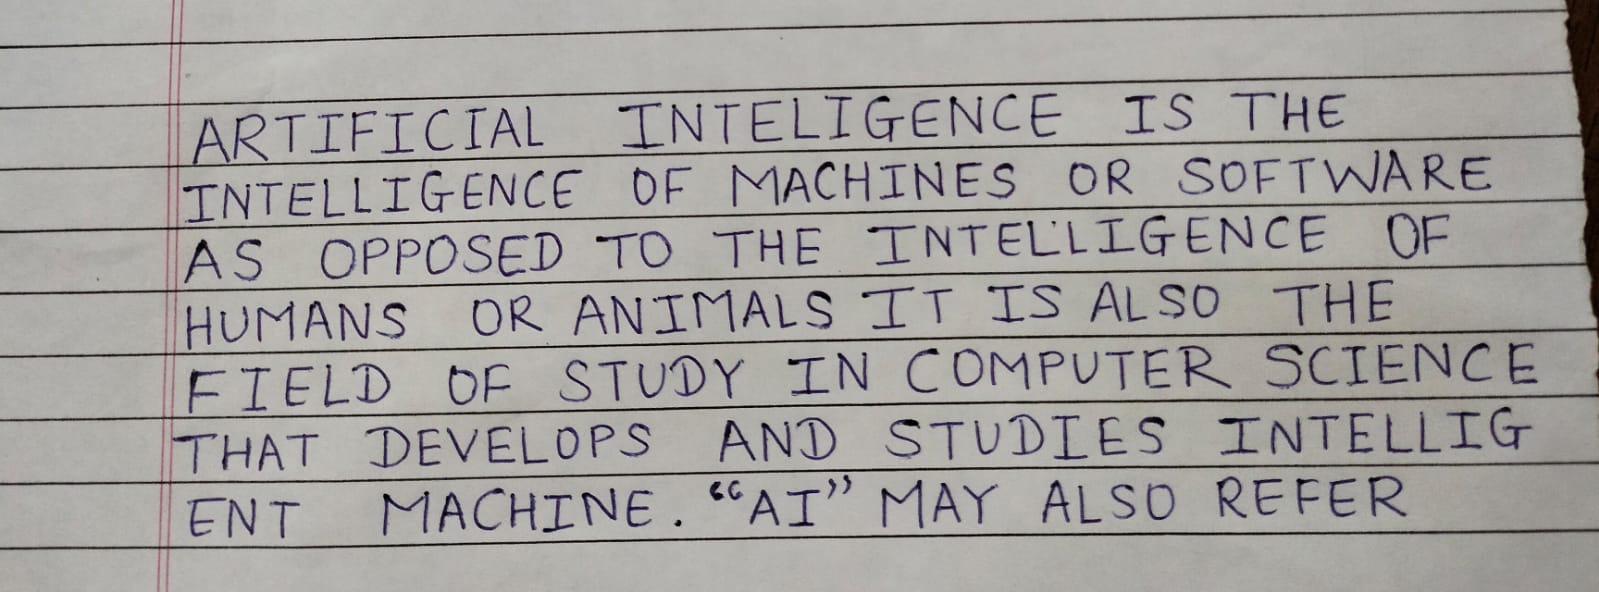 ARTIFICIAL INTELIGENCE IS THE
INTELLIGENCE OF MACHINES OR SOFTWARE
AS OPPOSED TO THE INTELLIGENCE OF
HUMANS OR ANIMALS IT IS ALSO THE
FIELD OF STUDY IN COMPUTER SCIENCE
THAT DEVELOPS AND STUDIES INTELLIG
ENT MACHINE. “AI” MAY ALSO REFER